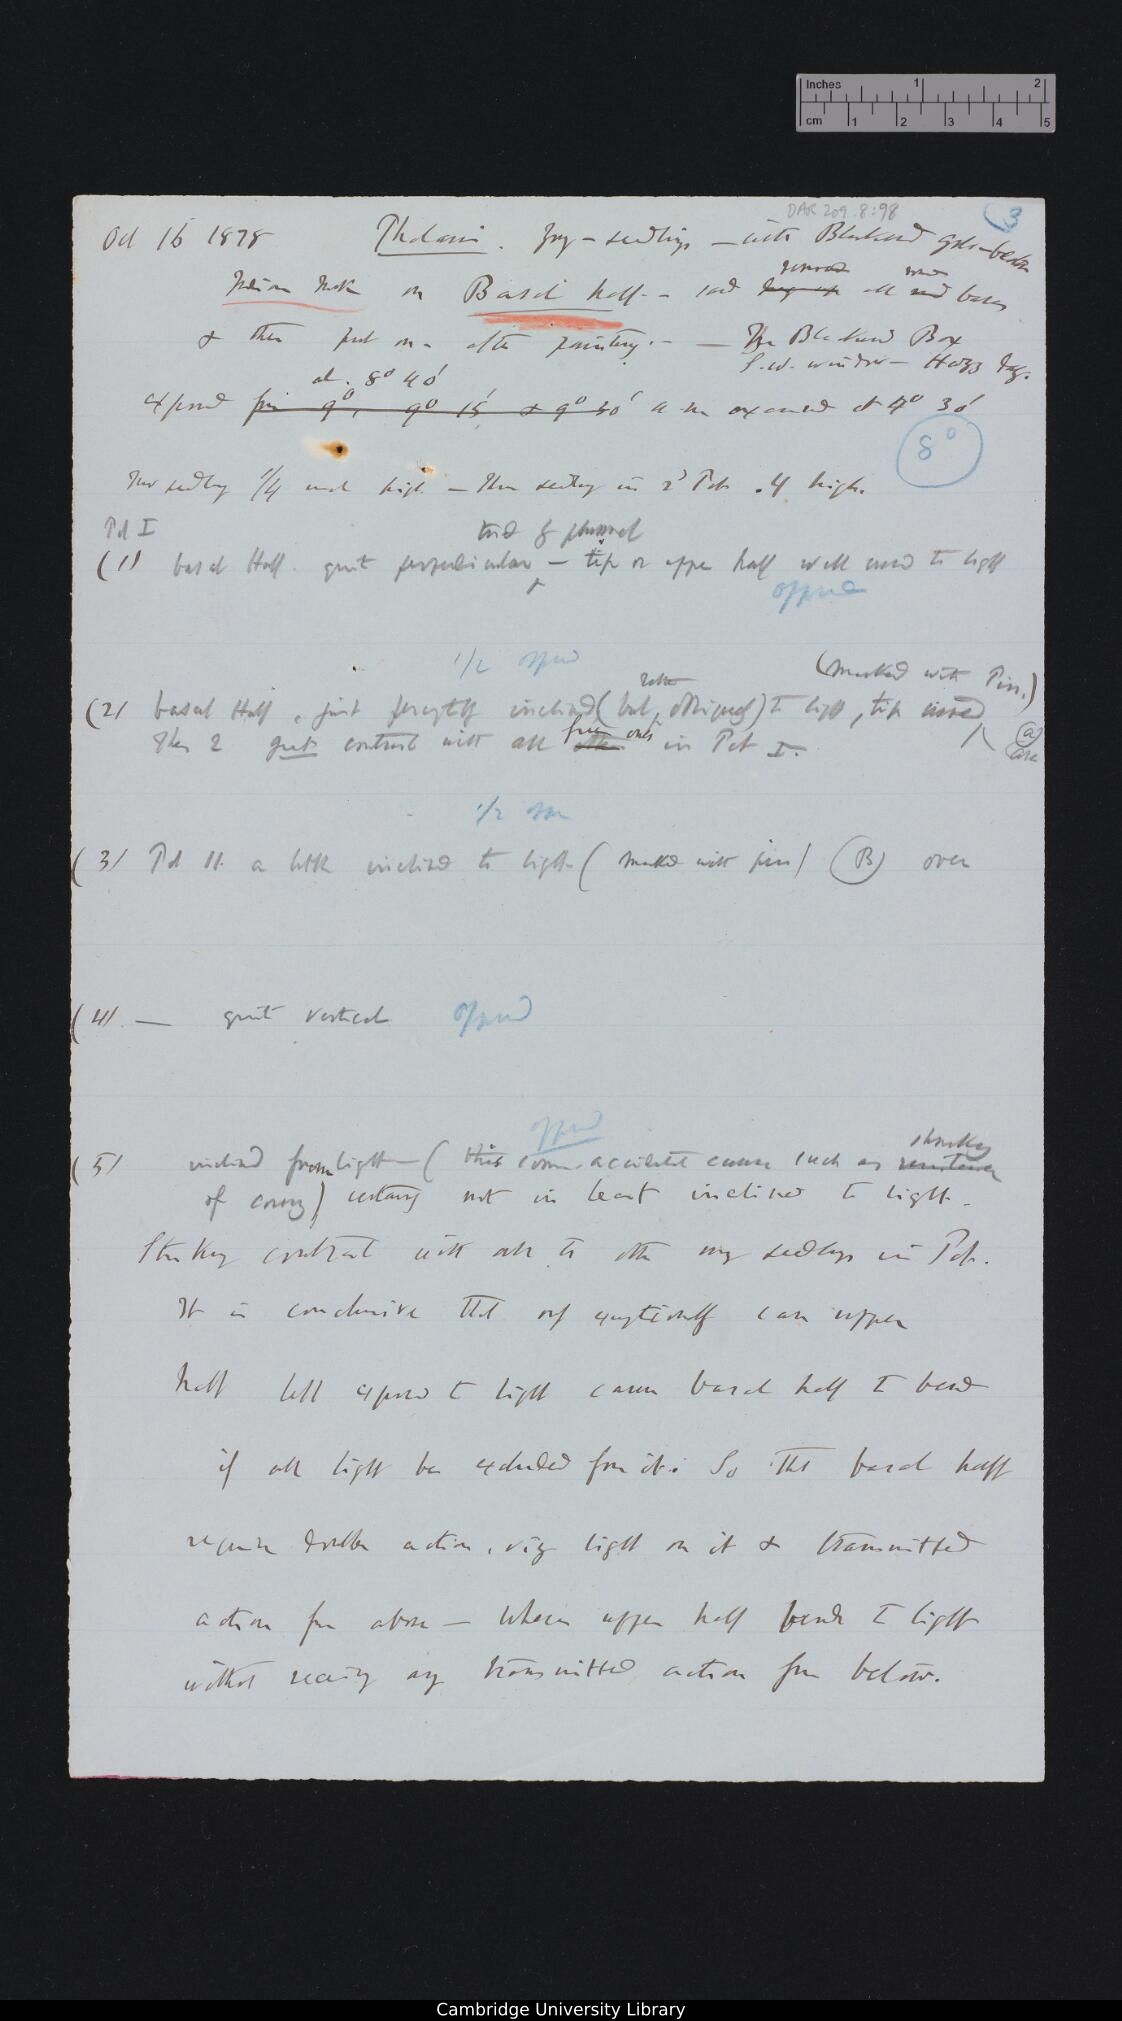 Inches 1 2
cm 1 2 3 4 5
DAR 209.8:98
3
Oct 16 1878 Phalaris. young-seedlings — with Blackened
Indian Ink on Basal half — sand removed all round bases
& then put on after painting. — In Blackened Box
S.W. window — Hazy day.
at. 8° 40'
exposed from 9°, 9° 15', & 9° 30' & examined at 4° 30'
8°
seedling 1/4 inch high — seedling in 2d Pot .4 high.
Pot I
(1) basal Half quite perpendicular — tip or upper half well curved to light
opposed
1/2 opposed
(Marked with Pin.)
rather
(2) basal Half, just perceptibly inclined (but obliquely) to light, tip curved
(a)
These 2 great contrast with all free ones in Pot I.
are
1/2 opp
(3) Pot II. a little inclined to light (marked with pin) (B) over
(4) — quite vertical opposed
opposed
(5) inclined from light — (this some accidental cause such as shrinking
of covering) certainly not in least inclined to light.
Striking contrast with all the other many seedlings in Pots.
It is conclusive that only exceptionally can upper
half left exposed to light cause basal half to bend
if all light be excluded from it: So that basal half
requires double action, viz light on it & transmitted
action from above — Whereas upper half bends to light
without receiving any transmitted action from below.
Cambridge University Library